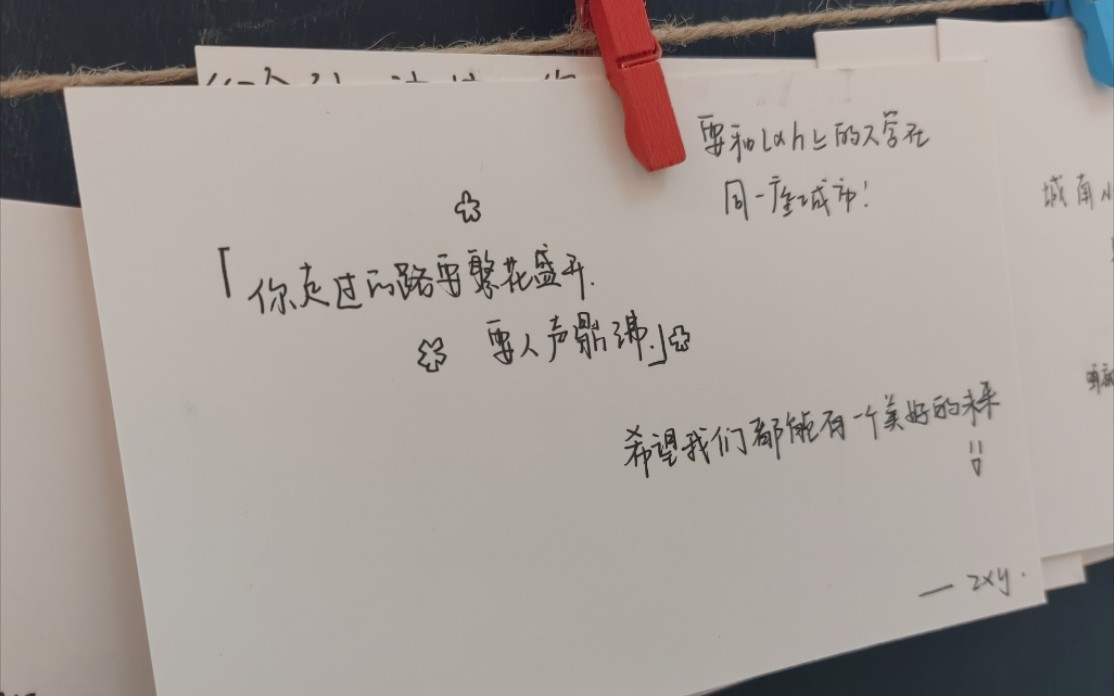 要和lxh上的大学在
同一座城市!
「你走过的路要繁花盛开.
要人声鼎沸.」
希望我们都能有一个美好的未来
— zxy.
城南小